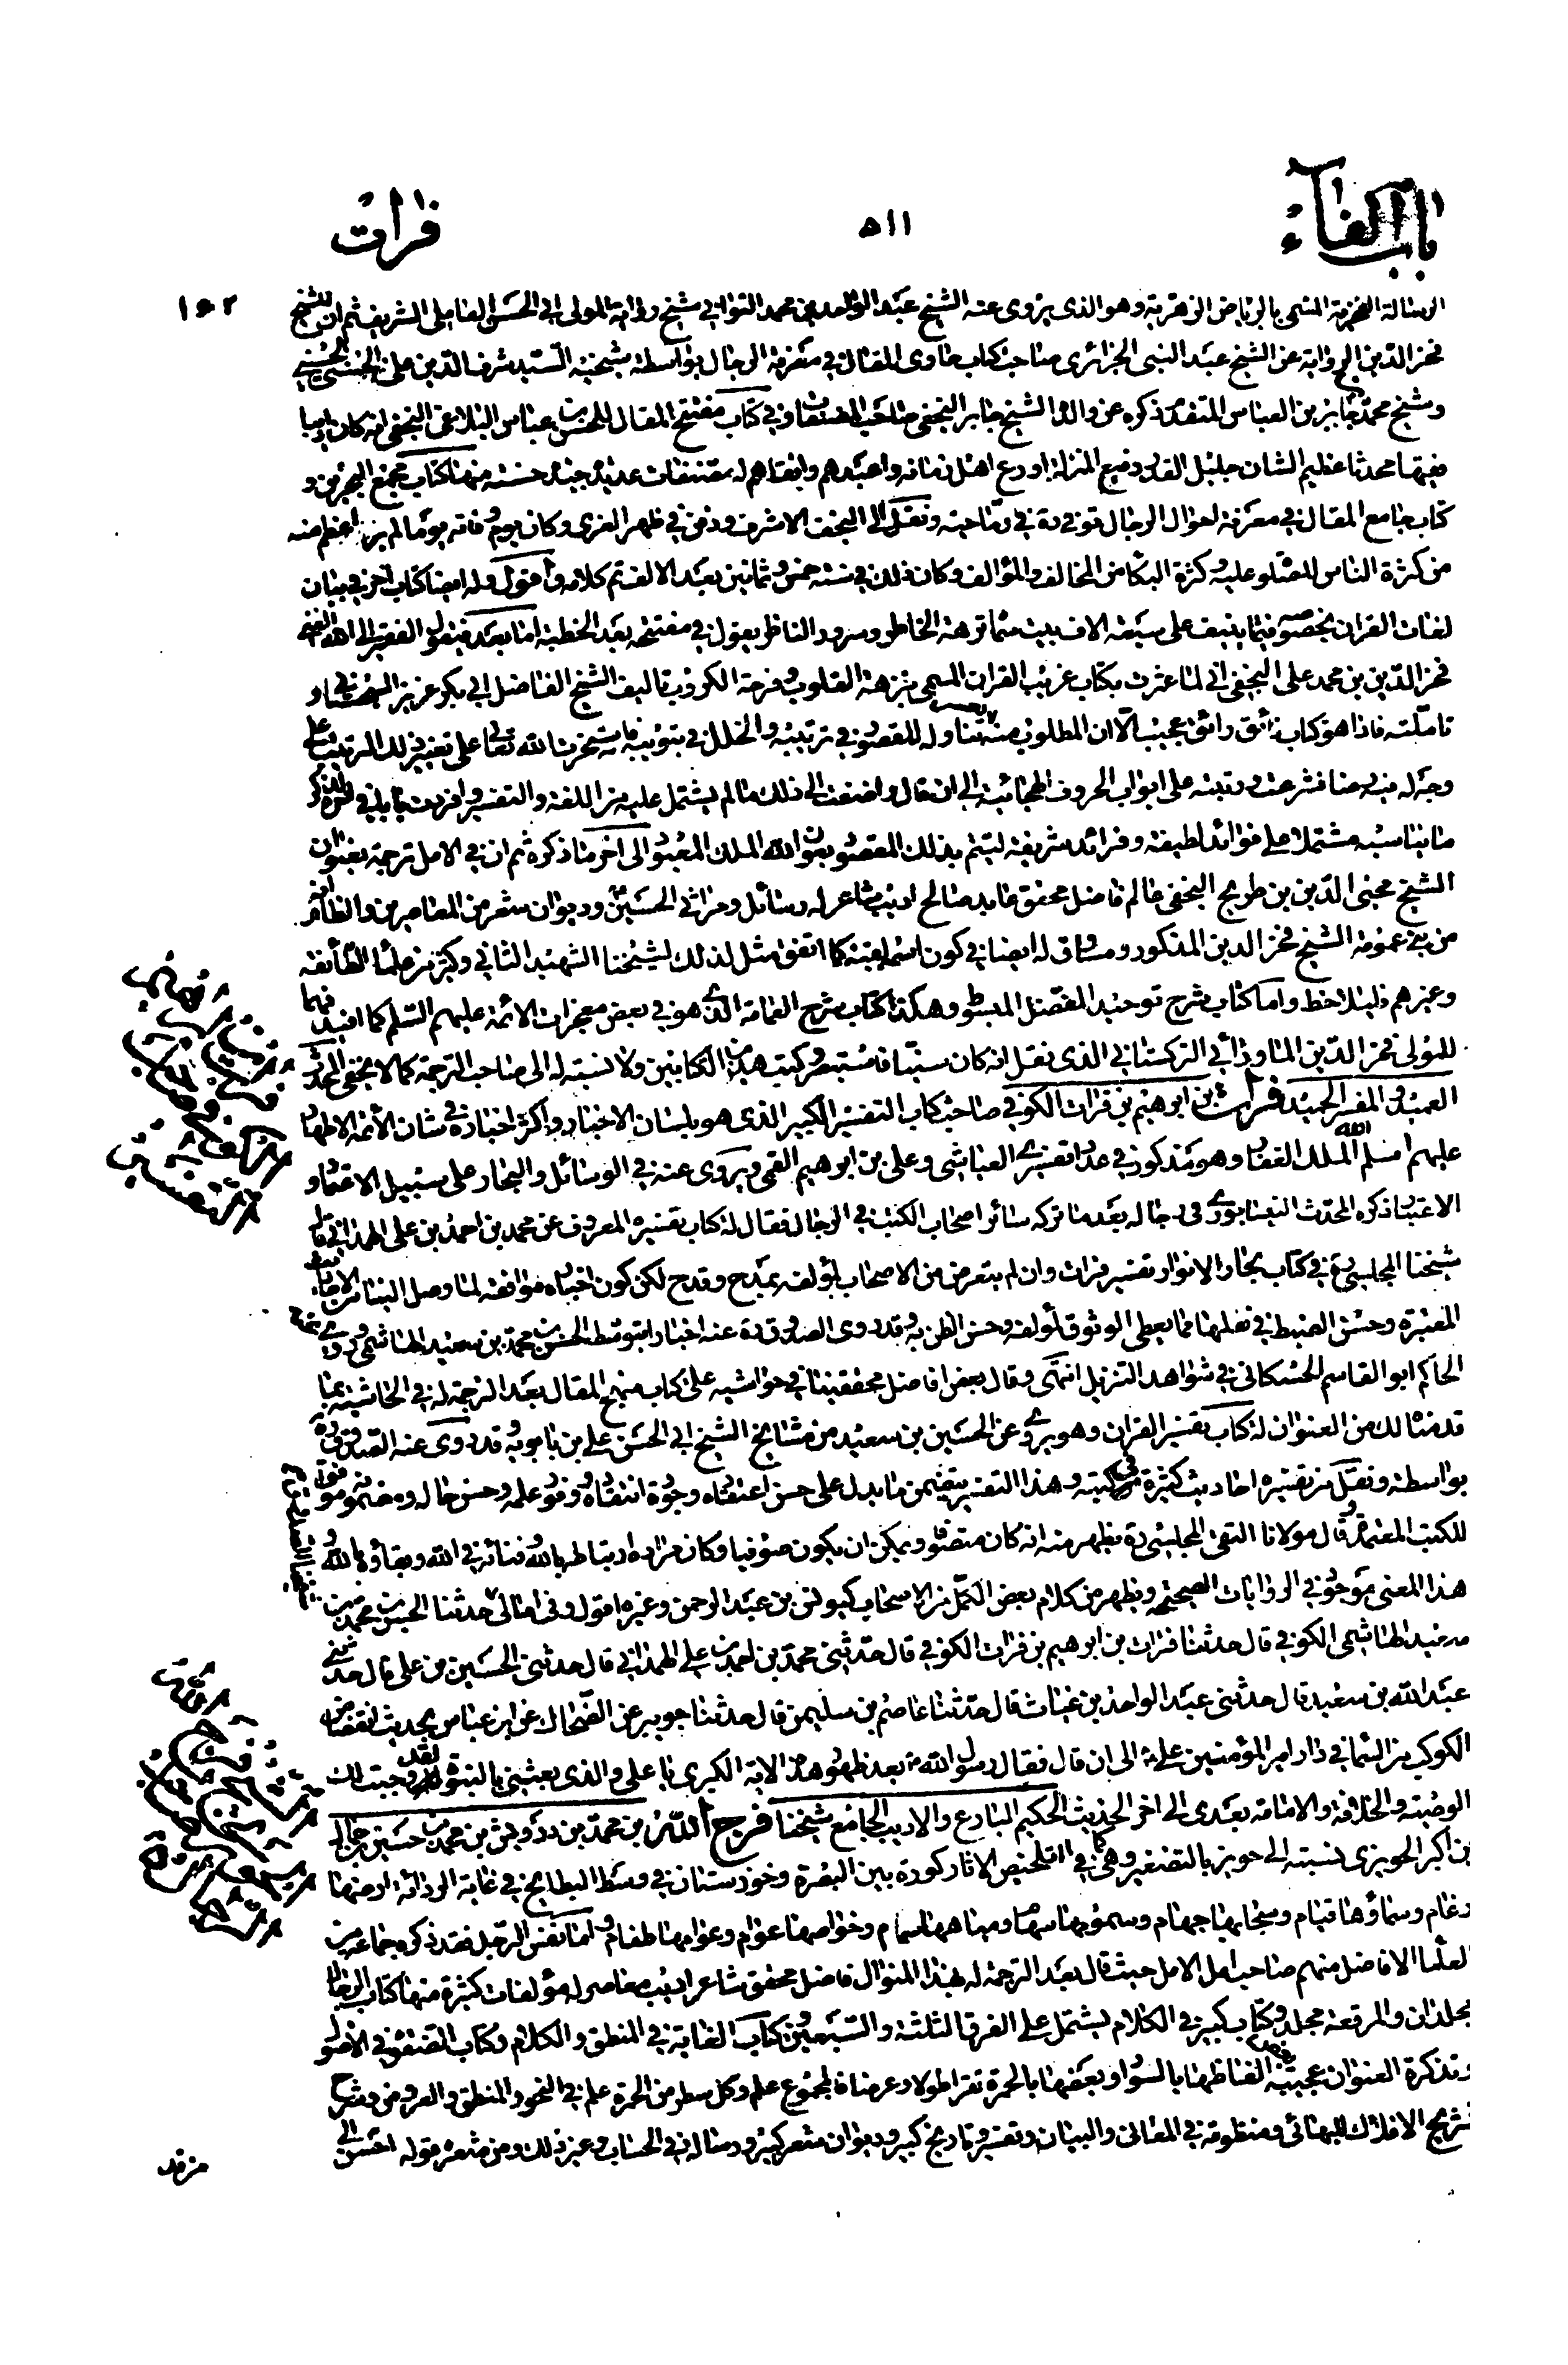 باب الفاء
٥١١
فرات
الرسالة الفخرية المسمى بالرياض الزهرية وهو الذى يروى عنه الشيخ عبد الواحد بن محمد البورانى شيخ رواية المولى ابى الحسن العاملى الشريف ثم ان للشيخ
فخر الدين الرواية عن الشيخ عبد النبى الجزائرى صاحب كتاب حاوى المقال فى معرفة الرجال بواسطة شيخيه السيد شرف الدين على الحسينى
وشيخ محمد جابر بن العباس المتقدم ذكره عن والده الشيخ جابر النجفى صاحب وفى كتاب منقح المقال للحسن بن عباس البلاغى النجفى انه كان اديبا
فقيها محدثا عظيم الشان جليل القدر رفيع المنزلة اورع اهل زمانه واعبدهم واتقاهم له مصنفات عديدة جيدة حسنة منها كتاب مجمع البحرين و
كتاب جامع المقال فى معرفة احوال الرجال توفى ره فى رماحية ونقل الى النجف الاشرف ودفن فى ظهر الغرى وكان يوم وفاته يوما لم ير اعظم منه
من كثرة الناس للصلوة عليه وكثرة البكاء من المخالف والمؤالف وكان ذلك فى سنة خمس وثمانين بعد الالف تم كلامه واقول وله ايضا كتاب آخر فى بيان
لغات القران بخصوصه فيما ينيف على سبعة الاف بيت مما تر هذه الخاطر وسرور الناظر يقول فى مفتتحه بعد الخطبة اما بعد فيقول الفقير الى الله الغنى
فخر الدين بن محمد على النجفى انى لما عثرت بكتاب غريب القران المسمى بنزهة القلوب وفرحة الكروب تاليف الشيخ الفاضل ابى بكر عزيز السجستانى و
تاملته فاذا هو كتاب فائق رائق عجيب الا ان المطلوب منه تناوله للقصور فى ترتيبه والخلل فى تبويبه فاستخرنا الله تعالى على تغيير ذلك الترتيب على
وجه له فيه رضا فشرعت ورتبته على ابواب الحروف الهجائية الى ان قال واضفت الى ذلك ما لم يشتمل عليه من اللغة والتفسير وافردت بابا فى
ما يناسبه مشتملا على فوائد لطيفة وفرائد شريفة ليتم بذلك المقصود بعون الله الملك المعبود الى آخر ما ذكره ثم ان فى الامل ترجمة بعنوان
الشيخ محيى الدين بن طريح النجفى عالم فاضل محقق عابد صالح اديب شاعر له رسائل ومراثى الحسين ع وديوان شعر من المعاصرين والظاهر انه
من بنى عمومة الشيخ فخر الدين المذكور ومساوق له ايضا فى كون اسمه لقبه كما اتفق مثل ذلك لشيخنا الشهيد الثانى وكثير من علماء الطائفة
وغيرهم فليلاحظ واما كتاب شرح توحيد المفضل المبسوط وهكذا كتاب شرح العمامة الذى هو فى بعض معجزات الائمة عليهم السلام كما افيد فهما
للمولى فخر الدين الماوراى التركستانى الذى نقل انه كان سنيا فاستبصر وكتب هذين الكتابين ولا نسبة له الى صاحب الترجمة كما لا يخفى المحدث
العميد والمفسر الحميد فرات بن ابرهيم بن فرات الكوفى صاحب كتاب التفسير الكبير الذى هو بلسان الاخبار واكثر اخباره فى شان الائمة الاطهار
عليهم سلم الله الملك الغفار وهو مذكور فى عداد تفسيرى العياشى وعلى بن ابرهيم القمى ويروى عنه فى الوسائل والبحار على سبيل الاعتماد و
الاعتبار ذكره المحدث النيسابورى فى رجاله بعد ما تركه سائر اصحاب الكتب فى الرجال فقال له كتاب تفسيره المعروف عن محمد بن احمد بن على الهمدانى قال
شيخنا المجلسى ره فى كتاب بحار الانوار تفسير فرات وان لم يتعرض من الاصحاب لمؤلفه بمدح وقدح لكن كون اخباره موافقة لما وصل الينا من الاحاديث
المعتبرة وحسن الضبط فى نقلها مما يعطى الوثوق لمؤلفه وحسن الظن به وقد روى الصدوق ره عنه اخبارا بتوسط الحسن بن محمد بن سعيد الهاشمى وروى عنه
الحاكم ابو القاسم الحسكانى فى شواهد التنزيل انتهى وقال بعض افاضل محققينا فى حواشيه على كتاب منهج المقال بعد الترجمة له فى الحاشية بما
قدمناه لك من العنوان له كتاب تفسير القران وهو يروى عن الحسين بن سعيد من مشايخ الشيخ ابى الحسن على بن بابويه وقد روى عنه الصدوق ره
بواسطة ونقل من تفسيره احاديث كثيرة فى كتبه وهذا التفسير يتضمن ما يدل على حسن اعتقاده وجودة انتقاده ووفور علمه وحسن حاله ومضمونه موافق
للكتب المعتمدة وقال مولانا التقى المجلسى ره يظهر منه انه كان متصوفا ويمكن ان يكون صوفيا وكان مراده ارتباطه بالله وفنائه فى الله وبقاؤه بالله و
هذا المعنى موجود فى الروايات الصحيحة ويظهر من كلام بعض الكمل من الاصحاب كيونس بن عبد الرحمن وغيره اقول وفى امالى حدثنا الحسن بن محمد بن
سعيد الهاشمى الكوفى قال حدثنا فرات بن ابرهيم بن فرات الكوفى قال حدثنى محمد بن احمد بن على الهمدانى قال حدثنى الحسين بن على قال حدثنى
عبد الله بن سعيد قال حدثنى عبد الواحد بن غياث قال حدثنا عاصم بن سليمن قال حدثنا جويبر عن الضحاك عن ابن عباس بحديث انقضاض
الكوكب من السماء فى دار امير المؤمنين ع الى ان قال فقال رسول الله ص بعد ظهور هذه الاية الكبرى يا على والذى بعثنى بالنبوة لقد وجبت لك
الوصية والخلافة والامامة بعدى الى اخر الحديث الحكيم البارع والاديب الجامع شيخنا فرج الله بن محمد بن درويش بن محمد بن حسين بن جمال
بن اكبر الحويزى نسبته الى حويز بالتصغير وهى كما فى تلخيص الاثار كورة بين البصرة وخوزستان فى وسط البطايح فى غاية الرداءة ارضها
رغام وسماؤها قيام وسحابها جهام وسمومها سهام ومياهها سمام وخواصها عوام وعوامها طغام واما نفس الرجل فقد ذكره جماعة من
العلماء الافاضل منهم صاحب امل الامل حيث قال بعد الترجمة له بهذا المنوال فاضل محقق شاعر اديب معاصر له مؤلفات كثيرة منها كتاب الرجال
مجلدان والمرقعة مجلد وكتاب كبير فى الكلام يشتمل على الفرق الثلثة والسبعين وكتاب الغاية فى المنطق والكلام وكتاب الصفوة فى الاصول
وتذكرة العنوان عجيبة بعض الفاظها بالسواد وبعضها بالحمرة تقرا طولا وعرضا فالمجموع علم وكل سطر من الحمرة علم فى النحو والمنطق والعروض وشرح
تشريح الافلاك للبهائى ومنظومة فى المعانى والبيان وتفسير وتاريخ كبير وديوان شعر كبير ورسالة فى الحساب وغير ذلك ومن شعره قوله احسن الى
من قد